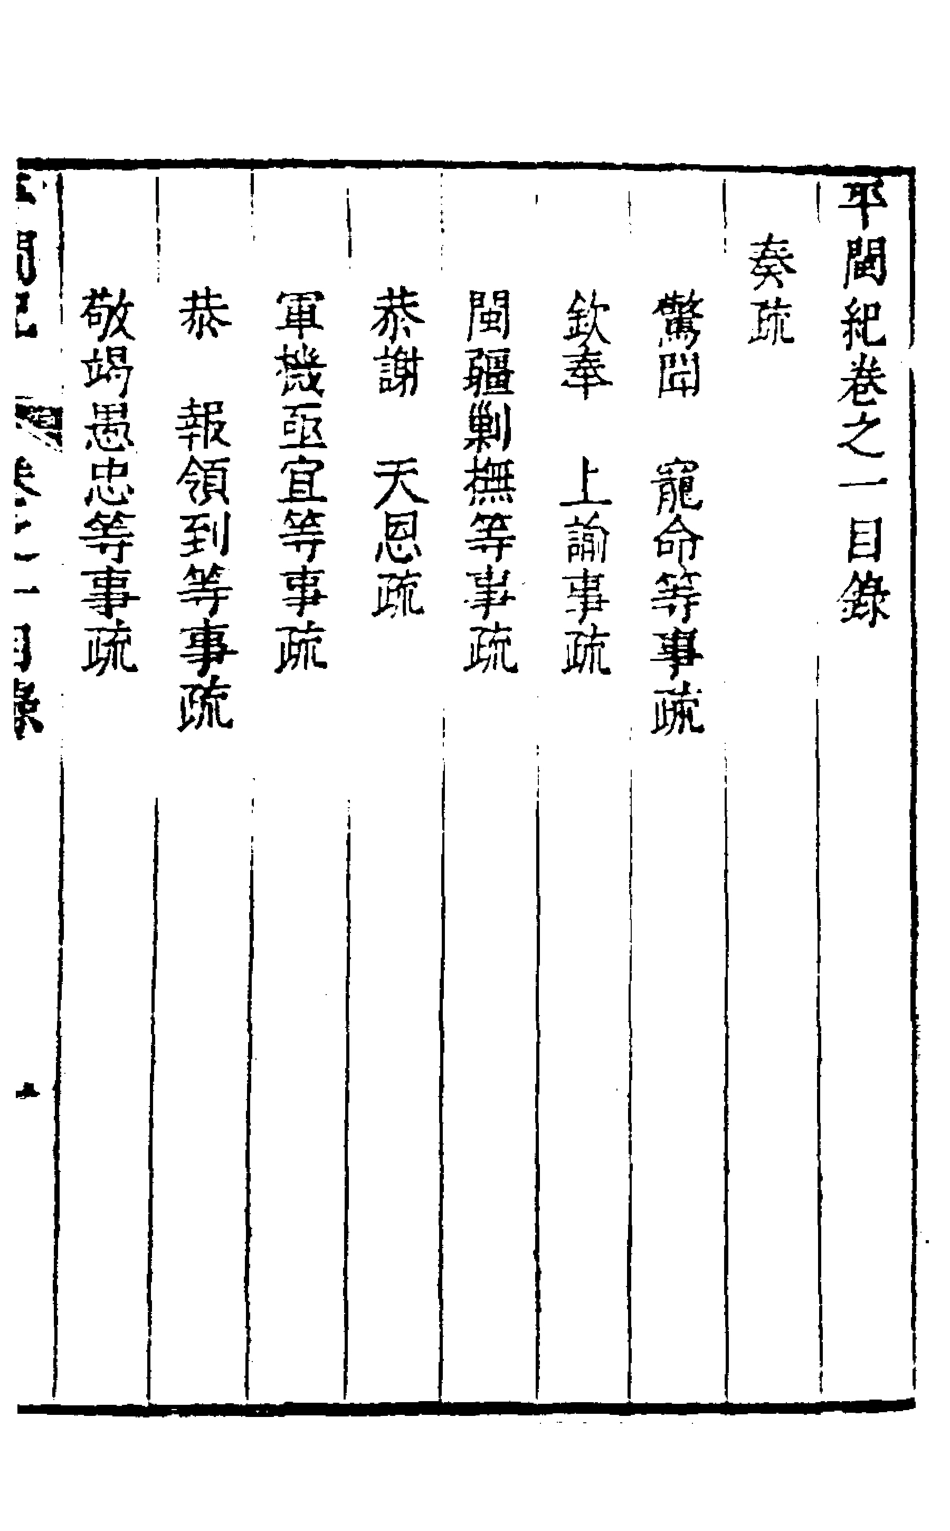 平閩紀卷之一目錄
奏疏
驚聞　寵命等事疏
欽奉　上諭事疏
閩疆剿撫等事疏
恭謝　天恩疏
軍機亟宜等事疏
恭　報領到等事疏
敬竭愚忠等事疏
平閩紀　卷之一目錄